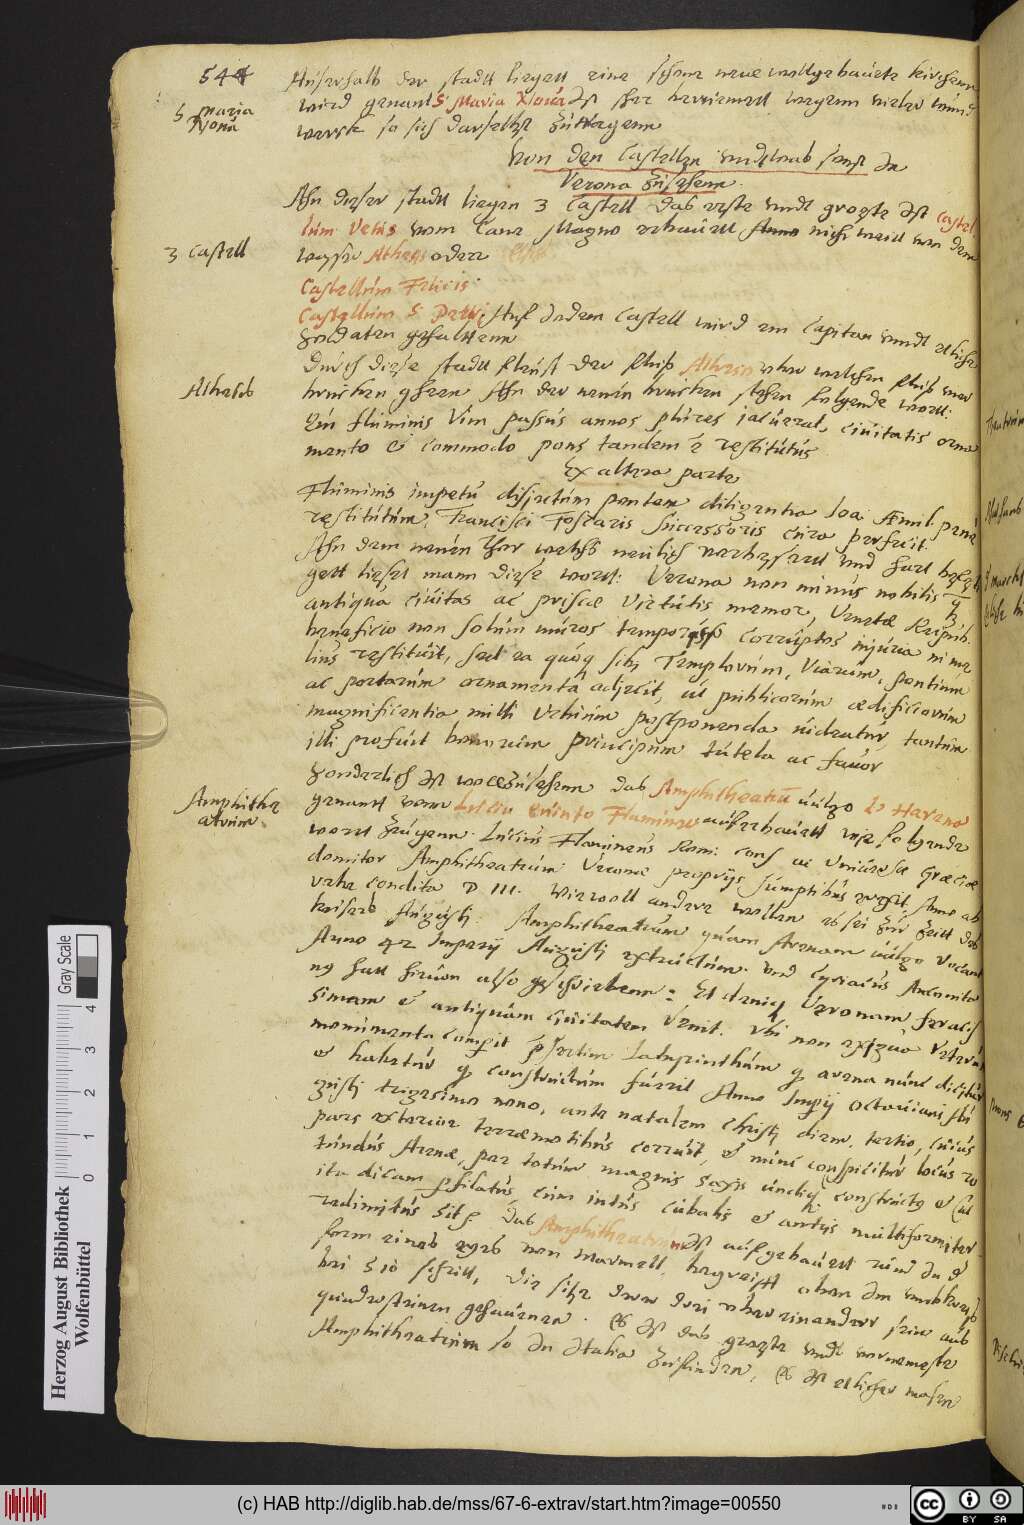 544
Auserhalb der stadtt liegett eine schone neue wollgebauete kirchenn
S Maria
Xiona
wird genant S. Maria Xiona Ist sher berviemett wegenn vieler wund
werck so sich daselbst zuttragenn
Von den Castellen undt was sonst In
Verona zusehenn.
Ahn dieser stadtt liegen 3 Castell das erste undt groeste Ist Castel
lum Vetus vom Cane Magno erbauett nicht weitt von dem
3 Castell
wasser Athegs oder
Castellum Felicis
Castellum S Petri Auf Jedem Castell wird ein Capitan undt etliche
Soldaten gehalttenn
Durch diese stadtt fleust der fluss Athesis uber welchen fluss vier
Athesis
brucken gehen Ahn der neuen brucken stehen folgende wortt:
Qui fluminis vim passus annos plures iacuerat, civitatis orna
mento & commodo pons tandem e restitutus
Ex altera parte
Fluminis impetu disiectum pontem diligentia Ioa: Æmil: pene
restitutum, Francisci Foscaris successoris cura perfecit.
Ahn dem neuen thor welchs neulich verbessertt und hart befesti
gett lieset mann diese wortt: Verona non minus nobilis
antiqua civitas ac priscæ virtutis memor, Venetæ Reipub.
beneficio non solum muros temporis corruptos injuria nime
lius restituit, sed ea quoq sibi Templorum, Viarum, pontium
ac portarum ornamenta adjecit, ut publicorum ædificiorum
magnificentia nulli Urbium postponenda videatur, tantum
illi profuit bonorum principum tutela ac favor
Sonderlich Ist woll zusehenn das Amphitheatrum vulgo l'Harena
Amphithe
atrum
genantt vom Lutio Quinto Flaminio auferbauett wie folgende
wortt zeugenn. Lucius Flaminius Rom: cons ac universæ Græciæ
domitor Amphitheatrum Veronæ proprijs sumptibus erexit Anno ab
urbe condita D III. Wiewoll andere wollen es sei zur zeitt des
keisers Augusti. Amphitheatrum quam Arenam vulgo vocant
Anno 42 Imperij Augusti extructum. Und Cyriacus Anconita
nus hatt hirvon also geschriebenn: Et deniq Veronam feracis
simam & antiquam civitatem venit. Ubi non exigua veterum
monumenta compit Psertim Labyrinthum q arena nunc dicitur
& habetur q constructum fuerit Anno Impij Octaviani Au
gusti trigesimo nono, ante natalem Christi diem. tertio, cuius
pars exterior terræmotibus corruit, & nunc conspicitur locus ro
tundus Arenæ, per totum magnis saxis undiq constructus & (ut
ita dicam scsilatus, cum intus cubalis & antijs multiformiter
redimitus sit. Das Amphitheatrum Ist aufgebauett rund In d
form eines eyes von Marmell, begreifft oben Im umbkreis
bei 510 schritt, die sitze dwer drei uber einander sein aus
quadersteinen gehauenen. Es Ist das groeste undt vornemeste
Amphitheatrum so In Italia zufinden, Es Ist etlicher masen
Herzog August Bibliothek
Wolfenbüttel
0 1 2 3 4
Gray Scale
(c) HAB http://diglib.hab.de/mss/67-6-extrav/start.htm?image=00550
cc BY SA